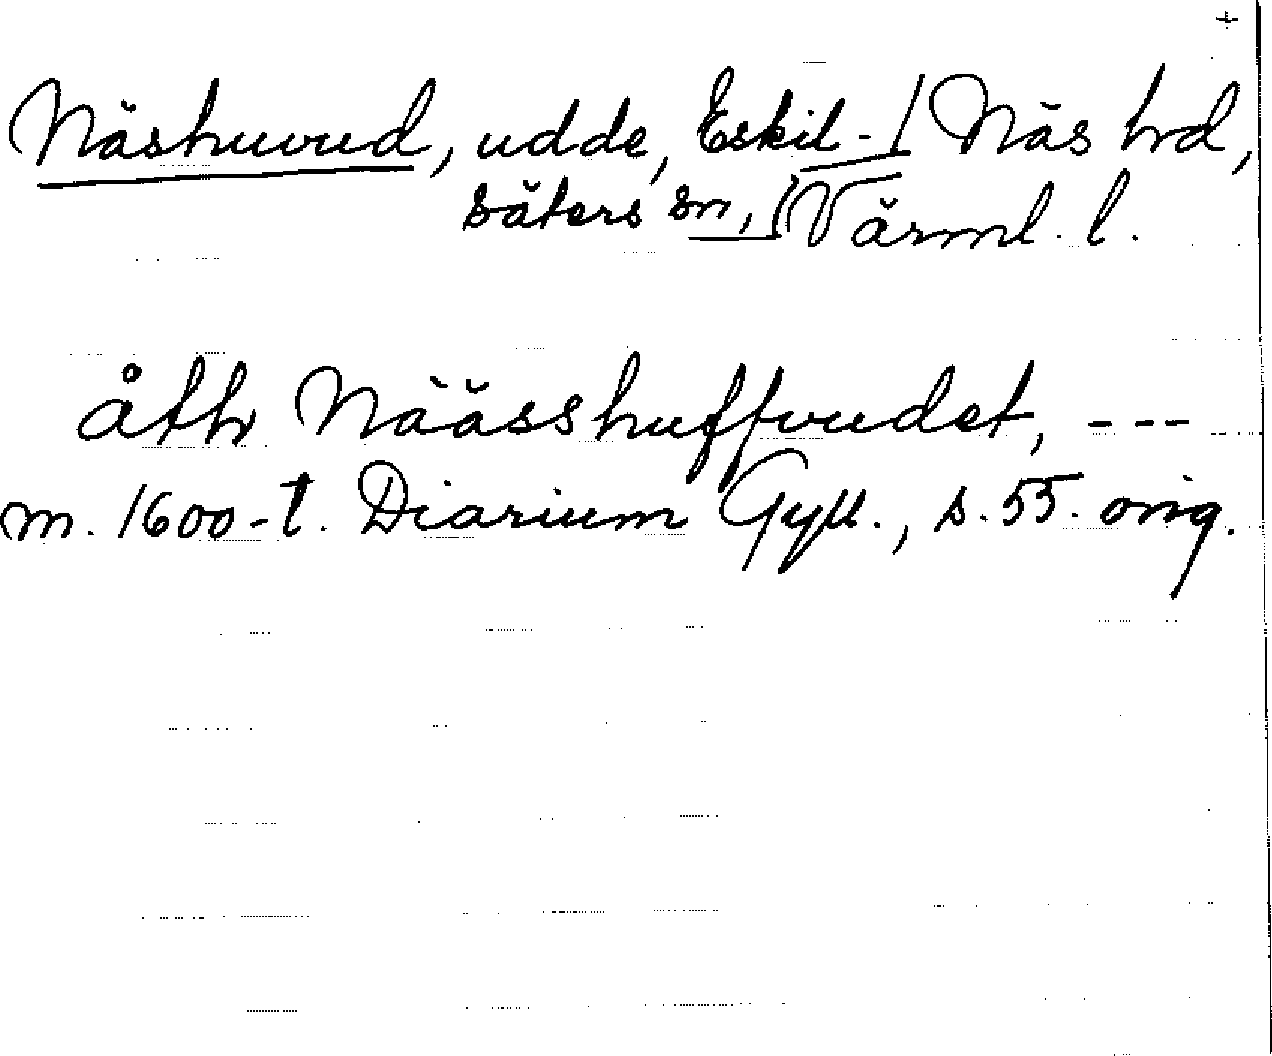 +
Näshuvud, udde, Eskil- Näs hd,
säters sn, Värml. l.
åth Näässhuffvudet, ---
m. 1600-t. Diarium Gyll., s. 55. orig.